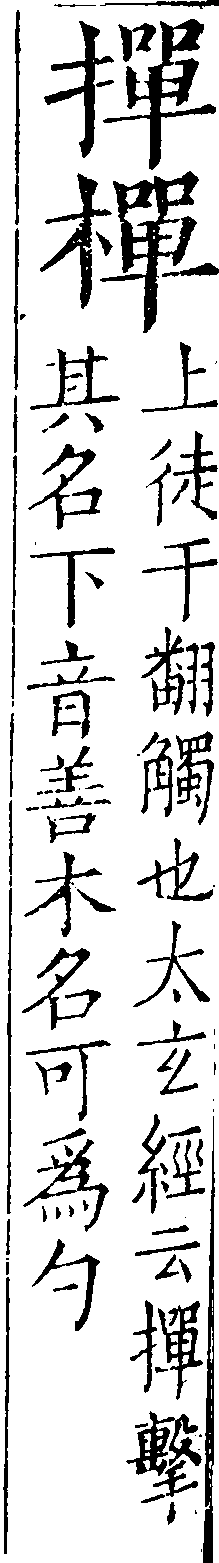 撣樿
上徒干翻觸也太玄經云撣擊
其名下音善木名可爲勺